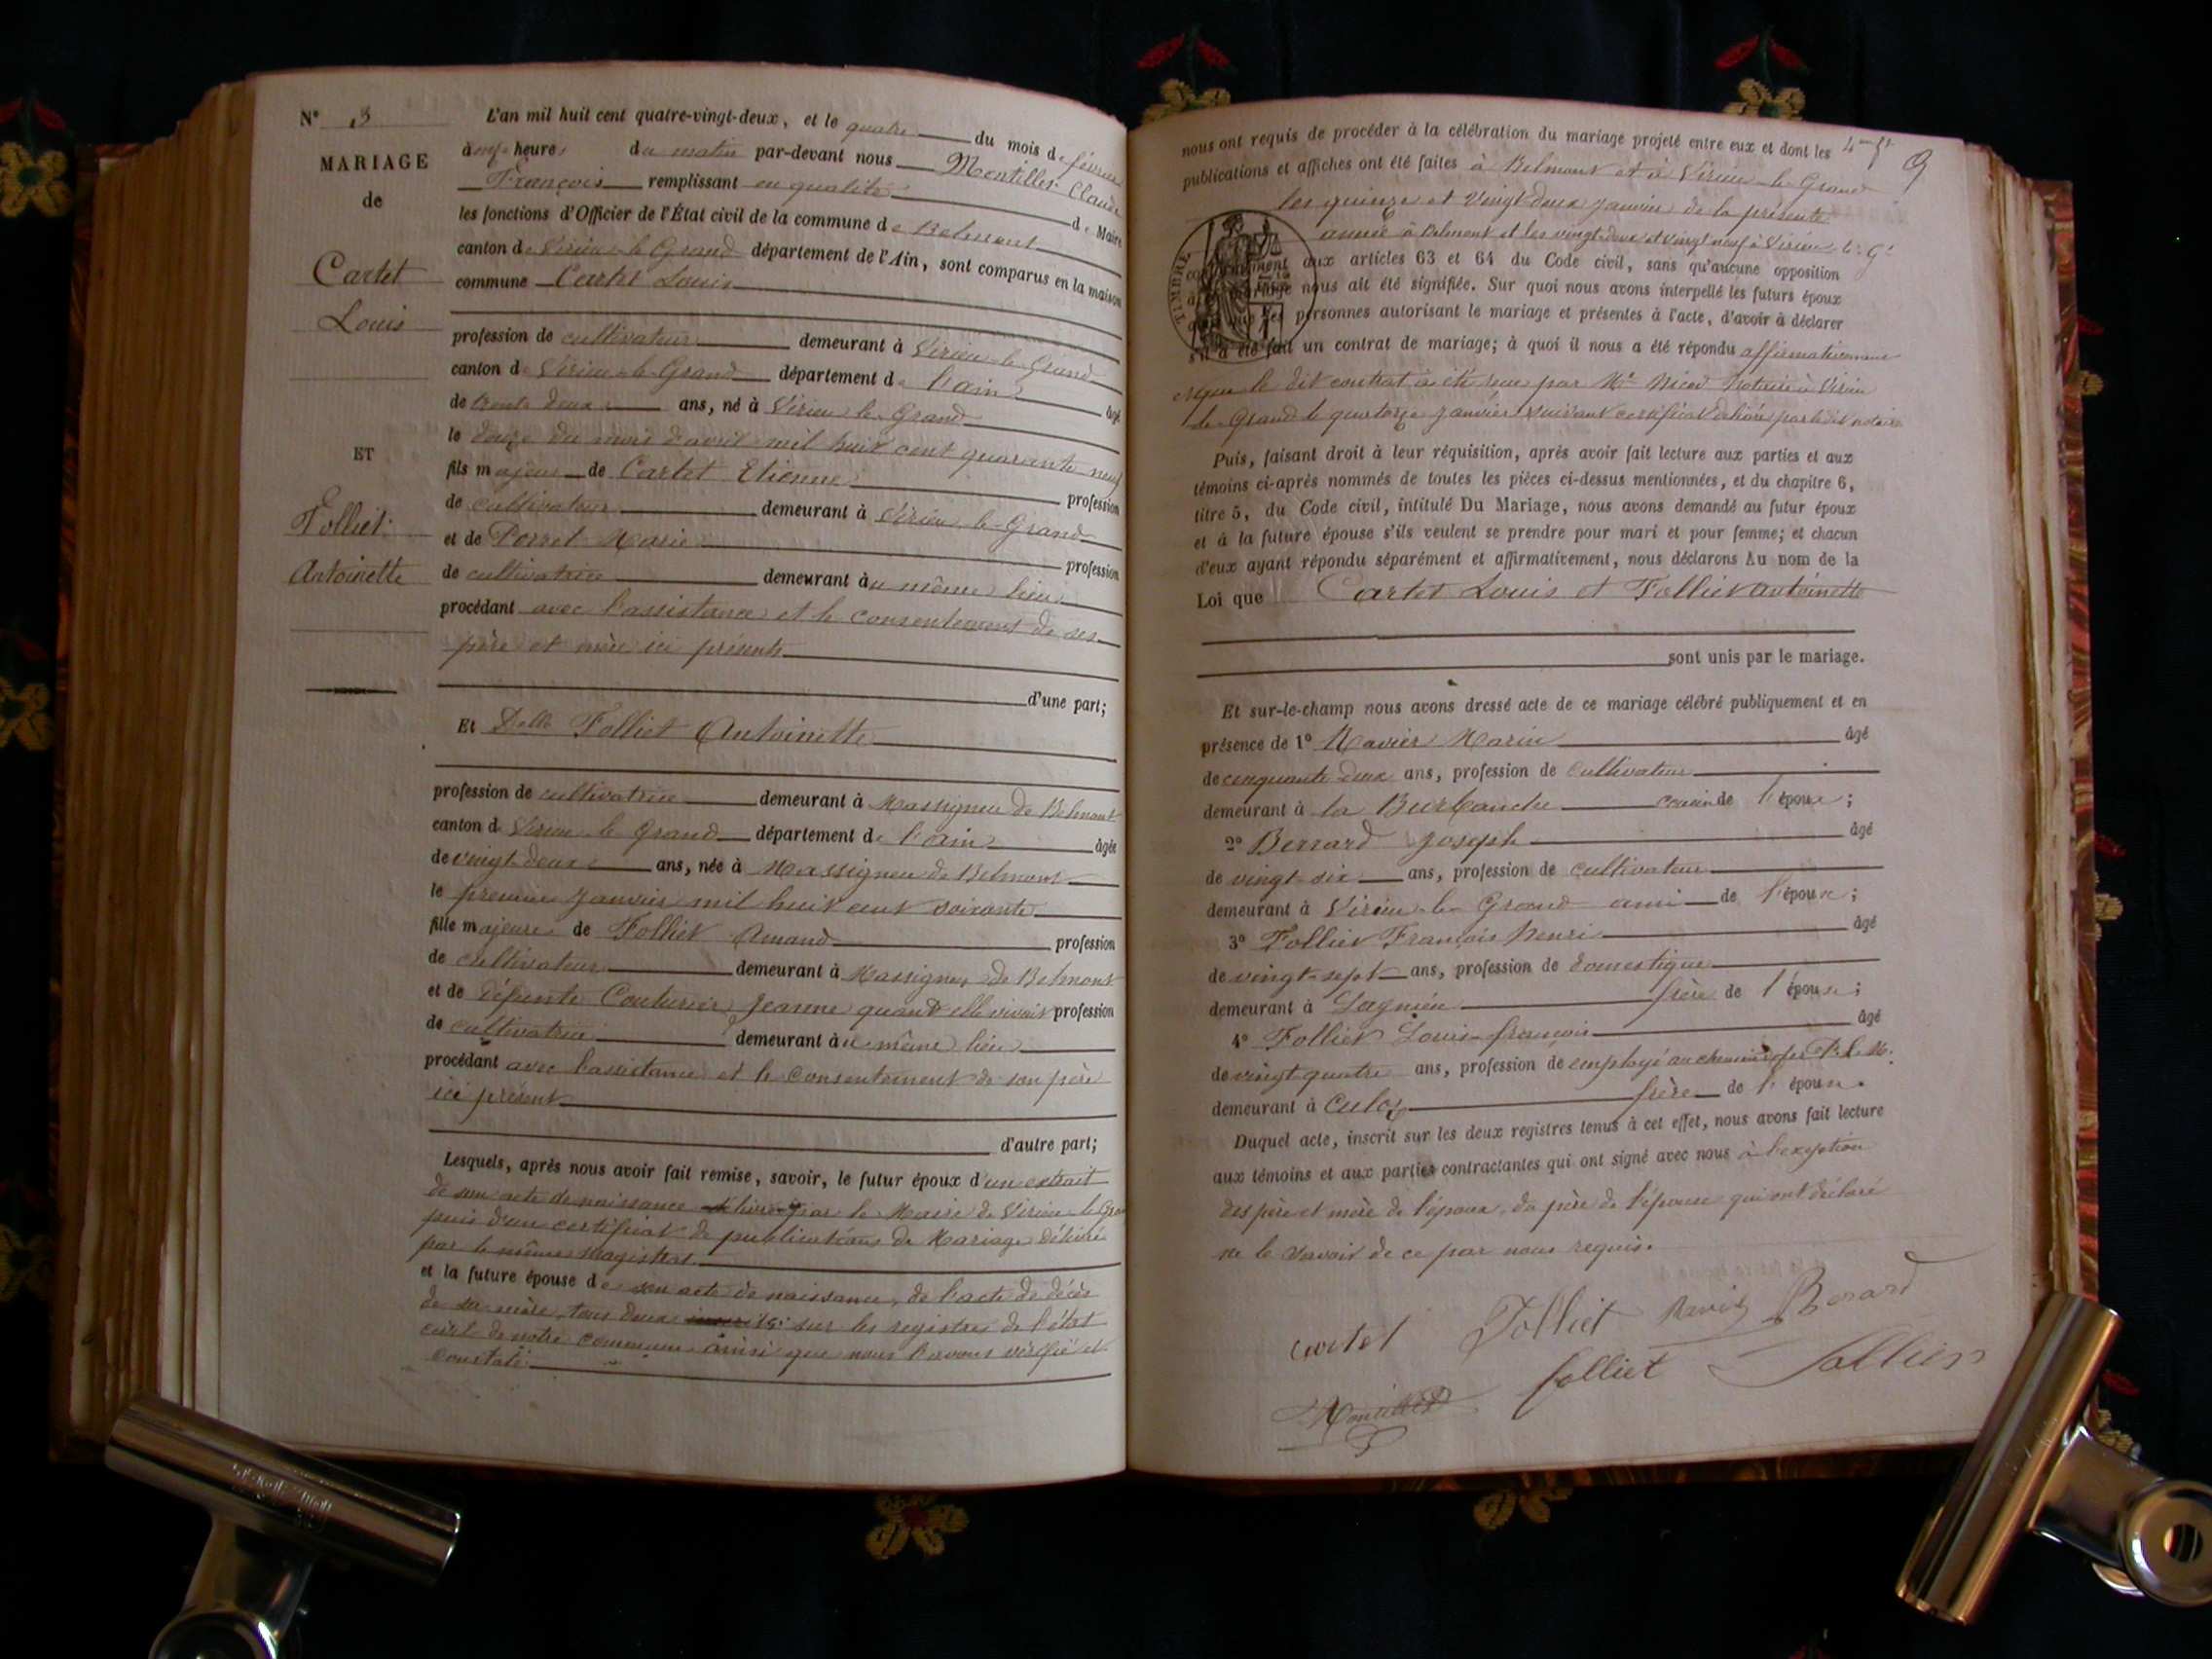 N° 3
MARIAGE
de
Cartet
Louis
ET
Folliet
Antoinette
L'an mil huit cent quatre-vingt-deux, et le quatre du mois de février
à onze heures du matin par-devant nous Montillet Claude
François remplissant en qualité de Maire
les fonctions d'Officier de l'État civil de la commune de Belmont
canton de Virieu-le-Grand département de l'Ain, sont comparus en la maison
commune Cartet Louis
profession de cultivateur demeurant à Virieu-le-Grand
canton de Virieu-le-Grand département de l'ain âgé
de trente deux ans, né à Virieu-le-Grand
le douze du mois d'avril mil huit cent quarante neuf
fils majeur de Cartet Etienne profession
de cultivateur demeurant à Virieu-le-Grand
et de Marie profession
de cultivatrice demeurant au même lieu
procédant avec l'assistance et le consentement de ses
père et mère ici présents
d'une part;
Et Delle Folliet Antoinette
profession de cultivatrice demeurant à Massignieu de Belmont
canton de Virieu-le-Grand département de l'ain âgée
de vingt-deux ans, née à Massignieu de Belmont
le premier Janvier mil huit cent soixante
fille majeure de Folliet Amand profession
de cultivateur demeurant à Massignieu de Belmont
et de défunte Couturier Jeanne quand elle vivait profession
de cultivatrice demeurant au même lieu
procédant avec l'assistance et le consentement de son père
ici présent
d'autre part;
Lesquels, après nous avoir fait remise, savoir, le futur époux d'un extrait
de son acte de naissance délivré par le Maire de Virieu-le-Grand
puis d'un certificat de publications de Mariage délivré
par le même magistrat.
et la future épouse de son acte de naissance, de l'acte de décès
de sa mère, tous deux sur les registres de l'état
civil de notre commune ainsi que nous l'avons vérifié et
constaté.
nous ont requis de procéder à la célébration du mariage projeté entre eux et dont les 9
publications et affiches ont été faites à Belmont et à Virieu-le-Grand
les quinze et Vingt-deux janvier de la présente
année à Belmont et les vingt-deux et vingt neuf à Virieu-le-Gd
TIMBRE
conformément aux articles 63 et 64 du Code civil, sans qu'aucune opposition
mariage nous ait été signifiée. Sur quoi nous avons interpellé les futurs époux
que les personnes autorisant le mariage et présentes à l'acte, d'avoir à déclarer
s'il a été fait un contrat de mariage; à quoi il nous a été répondu affirmativement
et que le dit contrat a été reçu par Me Nicod Notaire à Virieu
le-Grand le quatorze janvier suivant certificat délivré par le dit notaire
Puis, faisant droit à leur réquisition, après avoir fait lecture aux parties et aux
témoins ci-après nommés de toutes les pièces ci-dessus mentionnées, et du chapitre 6,
titre 5, du Code civil, intitulé Du Mariage, nous avons demandé au futur époux
et à la future épouse s'ils veulent se prendre pour mari et pour femme; et chacun
d'eux ayant répondu séparément et affirmativement, nous déclarons Au nom de la
Loi que Cartet Louis et Folliet Antoinette
sont unis par le mariage.
Et sur-le-champ nous avons dressé acte de ce mariage célébré publiquement et en
présence de 1° Marin âgé
de cinquante deux ans, profession de cultivateur
demeurant à la Burbanche cousin de l'époux;
2° Berrard Joseph âgé
de vingt-six ans, profession de cultivateur
demeurant à Virieu-le-Grand ami de l'époux;
3° Folliet François Henri âgé
de vingt-sept ans, profession de domestique
demeurant à Lagnieu frère de l'épouse;
4° Folliet Louis-françois âgé
de vingt-quatre ans, profession de employé au chemin de fer P.L.M.
demeurant à Culoz frère de l'épouse.
Duquel acte, inscrit sur les deux registres tenus à cet effet, nous avons fait lecture
aux témoins et aux parties contractantes qui ont signé avec nous à l'exception
des père et mère de l'époux, du père de l'épouse qui ont déclaré
ne le savoir de ce par nous requis.
Cartet Folliet Berard
Montillet folliet Folliet